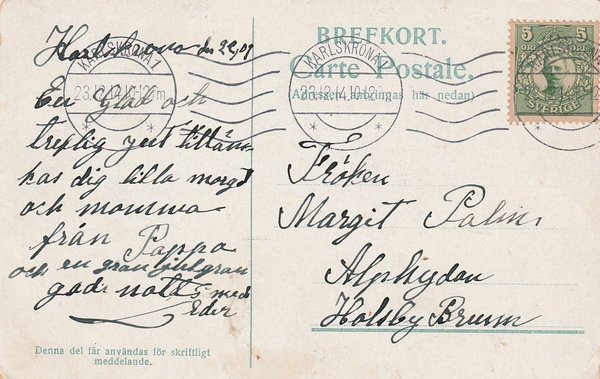 BREFKORT.
Carte Postale.
(Adressen antecknas här nedan)
5 5
ÖRE ÖRE
SVERIGE
KARLSKRONA 1
23.12.14.10-12 fm
KARLSKRONA 1
23.12.14.10-12 fm
Karlskrona den 22,
En Glad och
treflig Jul tillön-
kas dig lilla
och mamma
från Pappa
och en gran
god natt med
Eder
Denna del får användas för skriftligt
meddelande.
Fröken
Margit Palm
Alphyddan
Holsby Brunn